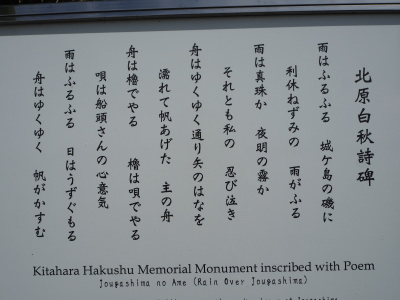 北原白秋詩碑
雨はふるふる　城ケ島の磯に
利休ねずみの　雨がふる
雨は真珠か　夜明の霧か
それとも私の　忍び泣き
舟はゆくゆく通り矢のはなを
濡れて帆あげた　主の舟
舟は櫓でやる　櫓は唄でやる
唄は船頭さんの心意気
雨はふるふる　日はうすぐもる
舟はゆくゆく　帆がかすむ
Kitahara Hakushu Memorial Monument inscribed with Poem
Jougashima no Ame (Rain Over Jougashima)